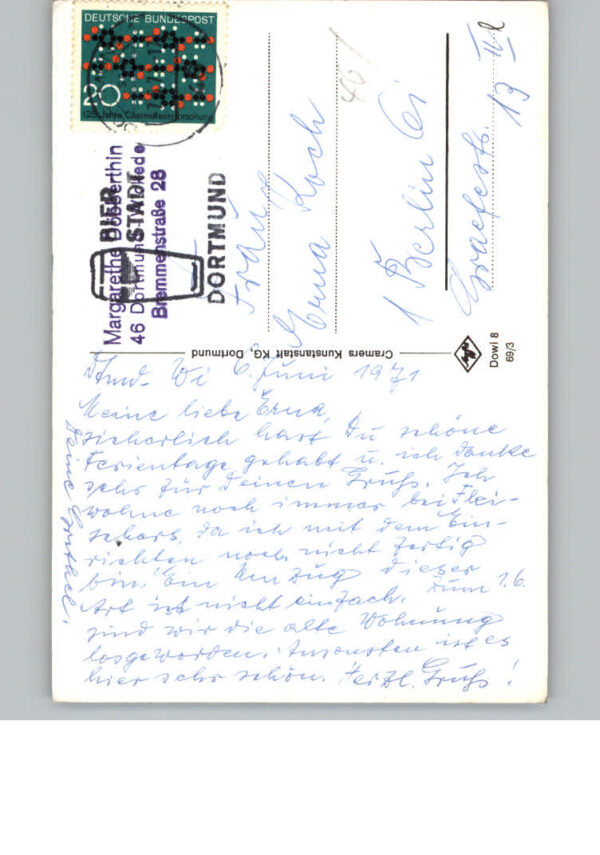 DEUTSCHE BUNDESPOST
20
125 Jahre Chemiefaserforschung
Margarethe Dobberthin
46 Dortmund-Wichlinghofen
Bremmenstraße 28
BIER
STADT
DORTMUND
Frau
Erna Koch
1 Berlin 61
Graefestr. 13 II
40
Cramers Kunstanstalt KG, Dortmund
Dowi 8
69/3
Dtmd-Wi 6. Juni 1971
Meine liebe Erna,
sicherlich hast Du schöne
Ferientage gehabt u. ich danke
sehr für Deinen Gruß. Ich
wohne noch immer bei Flei-
schers, da ich mit dem Ein-
richten noch nicht fertig
bin. Ein Umzug dieser
Art ist nicht einfach. Zum 1.6.
sind wir die alte Wohnung
losgeworden. Ansonsten ist es
hier sehr schön. Herzl. Gruß!
Deine